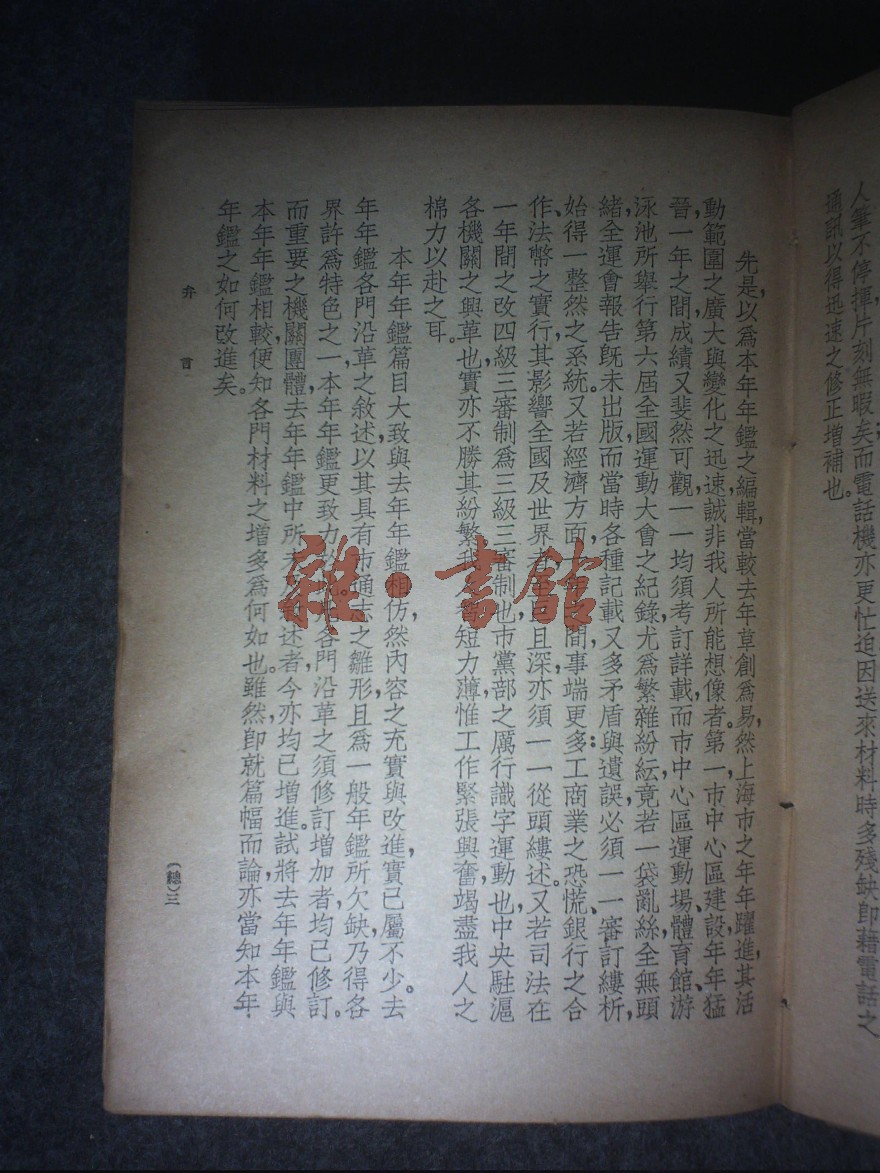 人筆不停揮，片刻無暇矣。而電話機亦更忙迫，因送來材料時多殘缺，卽藉電話之
通訊以得迅速之修正增補也。
先是，以爲本年年鑑之編輯，當較去年草創爲易，然上海市之年年躍進，其活
動範圍之廣大與變化之迅速，誠非我人所能想像者。第一市中心區建設，年年猛
晉，一年之間，成績又斐然可觀，一一均須考訂詳載，而市中心區運動場、體育館、游
泳池所舉行第六屆全國運動大會之紀錄，尤爲繁雜紛紜，竟若一袋亂絲，全無頭
緒，全運會報告旣未出版，而當時各種記載，又多矛盾與遺誤，必須一一審訂縷析，
始得一整然之系統。又若經濟方面，一年之間，事端更多：工商業之恐慌、銀行之合
作、法幣之實行，其影響全國及世界者至 且深，亦須一一從頭縷述。又若司法在
一年間之改四級三審制爲三級三審制也，市黨部之厲行識字運動也，中央駐滬
各機關之興革也，實亦不勝其紛繁，我人 短力薄，惟工作緊張興奮，竭盡我人之
棉力以赴之耳。
本年年鑑篇目大致與去年年鑑相仿，然內容之充實與改進，實已屬不少。去
年年鑑各門沿革之敘述，以其具有市通志之雛形，且爲一般年鑑所欠缺，乃得各
界許爲特色之一，本年年鑑更致力 各門沿革之須修訂增加者，均已修訂。
而重要之機關團體，去年年鑑中所 述者，今亦均已增進。試將去年年鑑與
本年年鑑相較，便知各門材料之增多爲何如也。雖然，卽就篇幅而論，亦當知本年
年鑑之如何改進矣。
弁言
（總）三
雜·書館